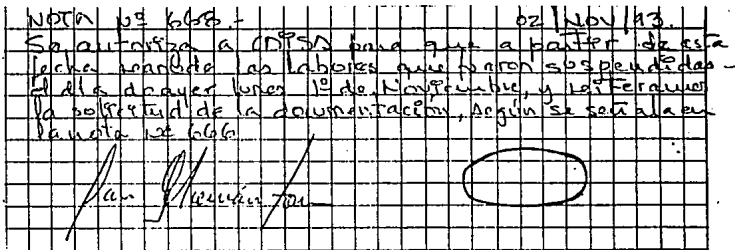 NOTA Nº 668 - 02/NOV/93.
Se autoriza a CDISA para que a partir de esta
fecha reanude las labores que fueron suspendidas -
el día de ayer lunes 1º de Noviembre, y reiteramos
la solicitud de la documentación, según se señala en
la nota Nº 666